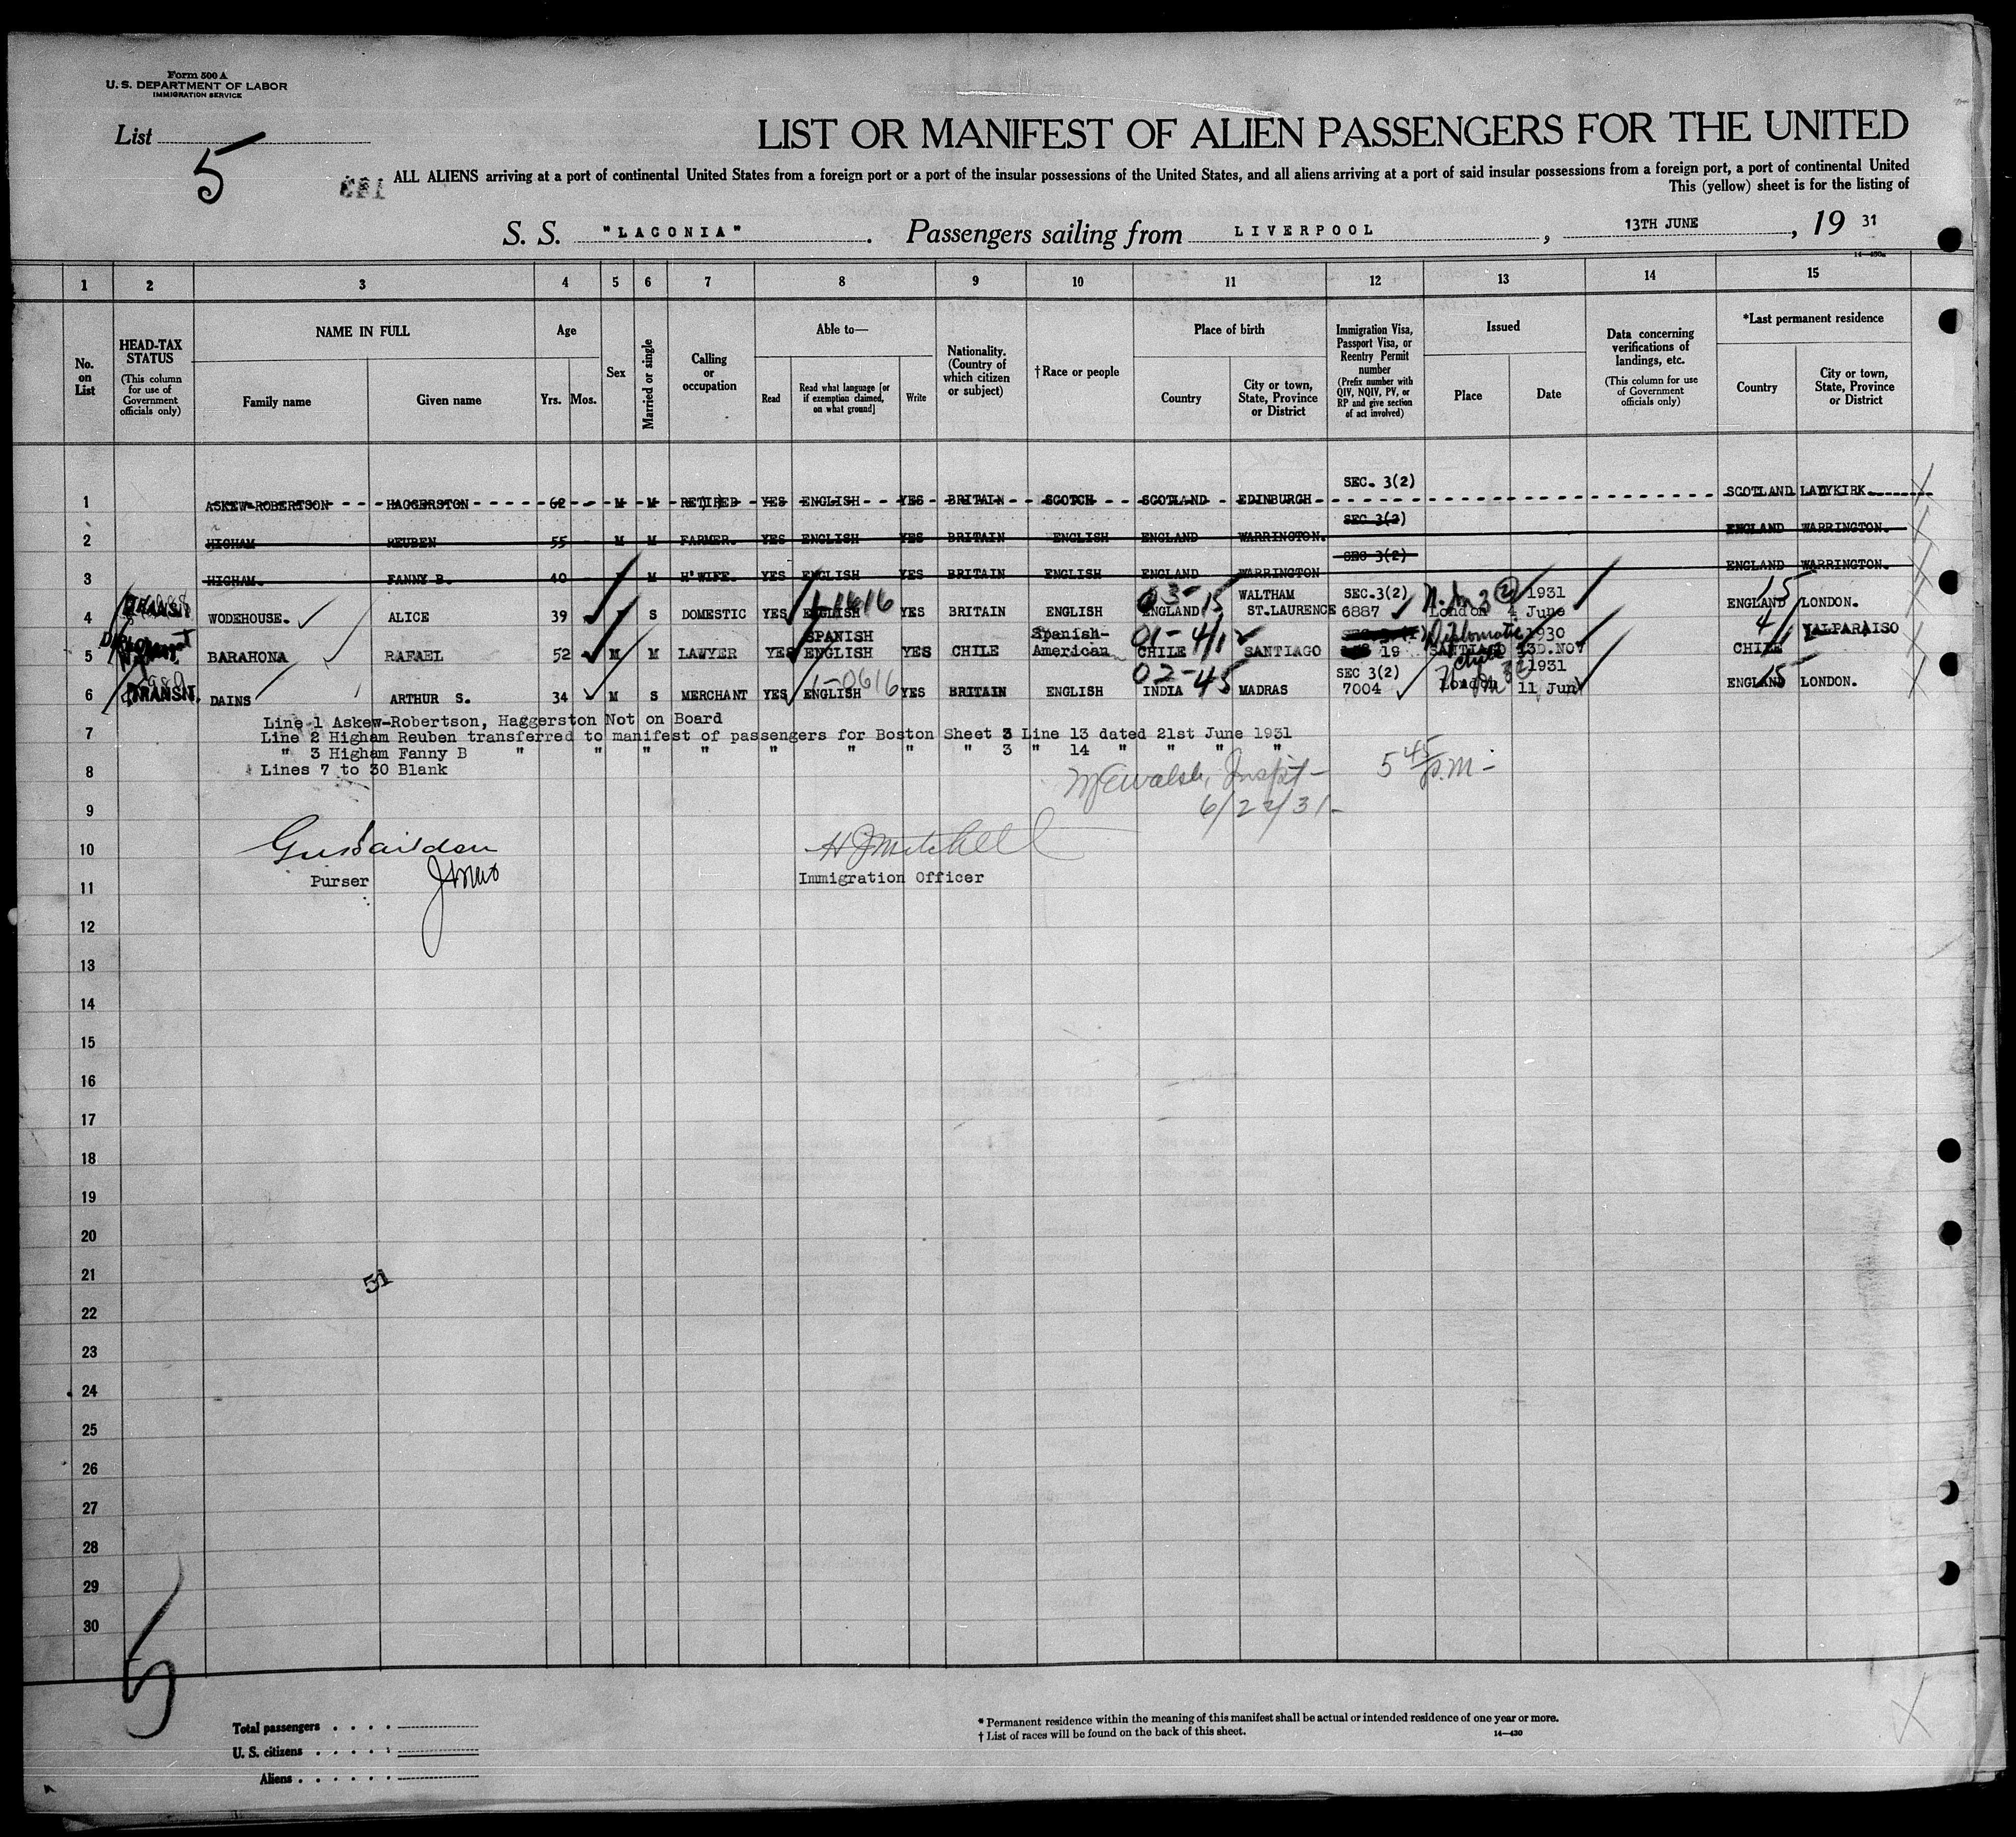 Form 500 A
U. S. DEPARTMENT OF LABOR
IMMIGRATION SERVICE
List
5
LIST OR MANIFEST OF ALIEN PASSENGERS FOR THE UNITED
ALL ALIENS arriving at a port of continental United States from a foreign port or a port of the insular possessions of the United States, and all aliens arriving at a port of said insular possessions from a foreign port, a port of continental United
This (yellow) sheet is for the listing of
S. S. "LACONIA" . Passengers sailing from LIVERPOOL , 13TH JUNE , 19 31
1 2 3 4 5 6 7 8 9 10 11 12 13 14 15
No. on List
HEAD-TAX STATUS (This column for use of Government officials only)
NAME IN FULL Family name Given name
Age Yrs. Mos.
Sex
Married or single
Calling or occupation
Able to— Read Read what language [or if exemption claimed, on what ground] Write
Nationality. (Country of which citizen or subject)
†Race or people
Place of birth Country City or town, State, Province or District
Immigration Visa, Passport Visa, or Reentry Permit number (Prefix number with QIV, NQIV, PV, or RP and give section of act involved)
Issued Place Date
Data concerning verifications of landings, etc. (This column for use of Government officials only)
*Last permanent residence Country City or town, State, Province or District
1 ASKEW-ROBERTSON HAGGERSTON 62 M M RETIRED YES ENGLISH YES BRITAIN SCOTCH SCOTLAND EDINBURGH SEC. 3(2) SCOTLAND LADYKIRK
2 HIGHAM REUBEN 55 M M FARMER. YES ENGLISH YES BRITAIN ENGLISH ENGLAND WARRINGTON. SEC 3(2) ENGLAND WARRINGTON.
3 HIGHAM. FANNY B. 40 M H'WIFE. YES ENGLISH YES BRITAIN ENGLISH ENGLAND WARRINGTON SEC 3(2) ENGLAND WARRINGTON.
4 TRANSIT WODEHOUSE. ALICE 39 S DOMESTIC YES ENGLISH YES BRITAIN ENGLISH 03-15 ENGLAND WALTHAM ST.LAURENCE SEC.3(2) 6887 London 1931 4 June 15 ENGLAND LONDON.
5 BARAHONA RAFAEL 52 M M LAWYER YES SPANISH ENGLISH YES CHILE Spanish-American CHILE SANTIAGO 19 Diplomatic SANTIAGO Chile 1930 13D.NOV CHILE VALPARAISO
6 TRANSIT. DAINS ARTHUR S. 34 M S MERCHANT YES ENGLISH YES BRITAIN ENGLISH 02-45 INDIA MADRAS SEC 3(2) 7004 London 1931 11 Jun 15 ENGLAND LONDON.
Line 1 Askew-Robertson, Haggerston Not on Board
7 Line 2 Higham Reuben transferred to manifest of passengers for Boston Sheet 3 Line 13 dated 21st June 1931
" 3 Higham Fanny B " " " " " " " " 3 " 14 " " " "
8 Lines 7 to 30 Blank
5 45 p.m-
9 6/22/31-
10 H J Mitchell
Purser
Immigration Officer
11
12
13
14
15
16
17
18
19
20
21
51
22
23
24
25
26
27
28
29
30
5
Total passengers . . . .
U. S. citizens . . . . .
Aliens . . . . . .
* Permanent residence within the meaning of this manifest shall be actual or intended residence of one year or more.
† List of races will be found on the back of this sheet.
14—430